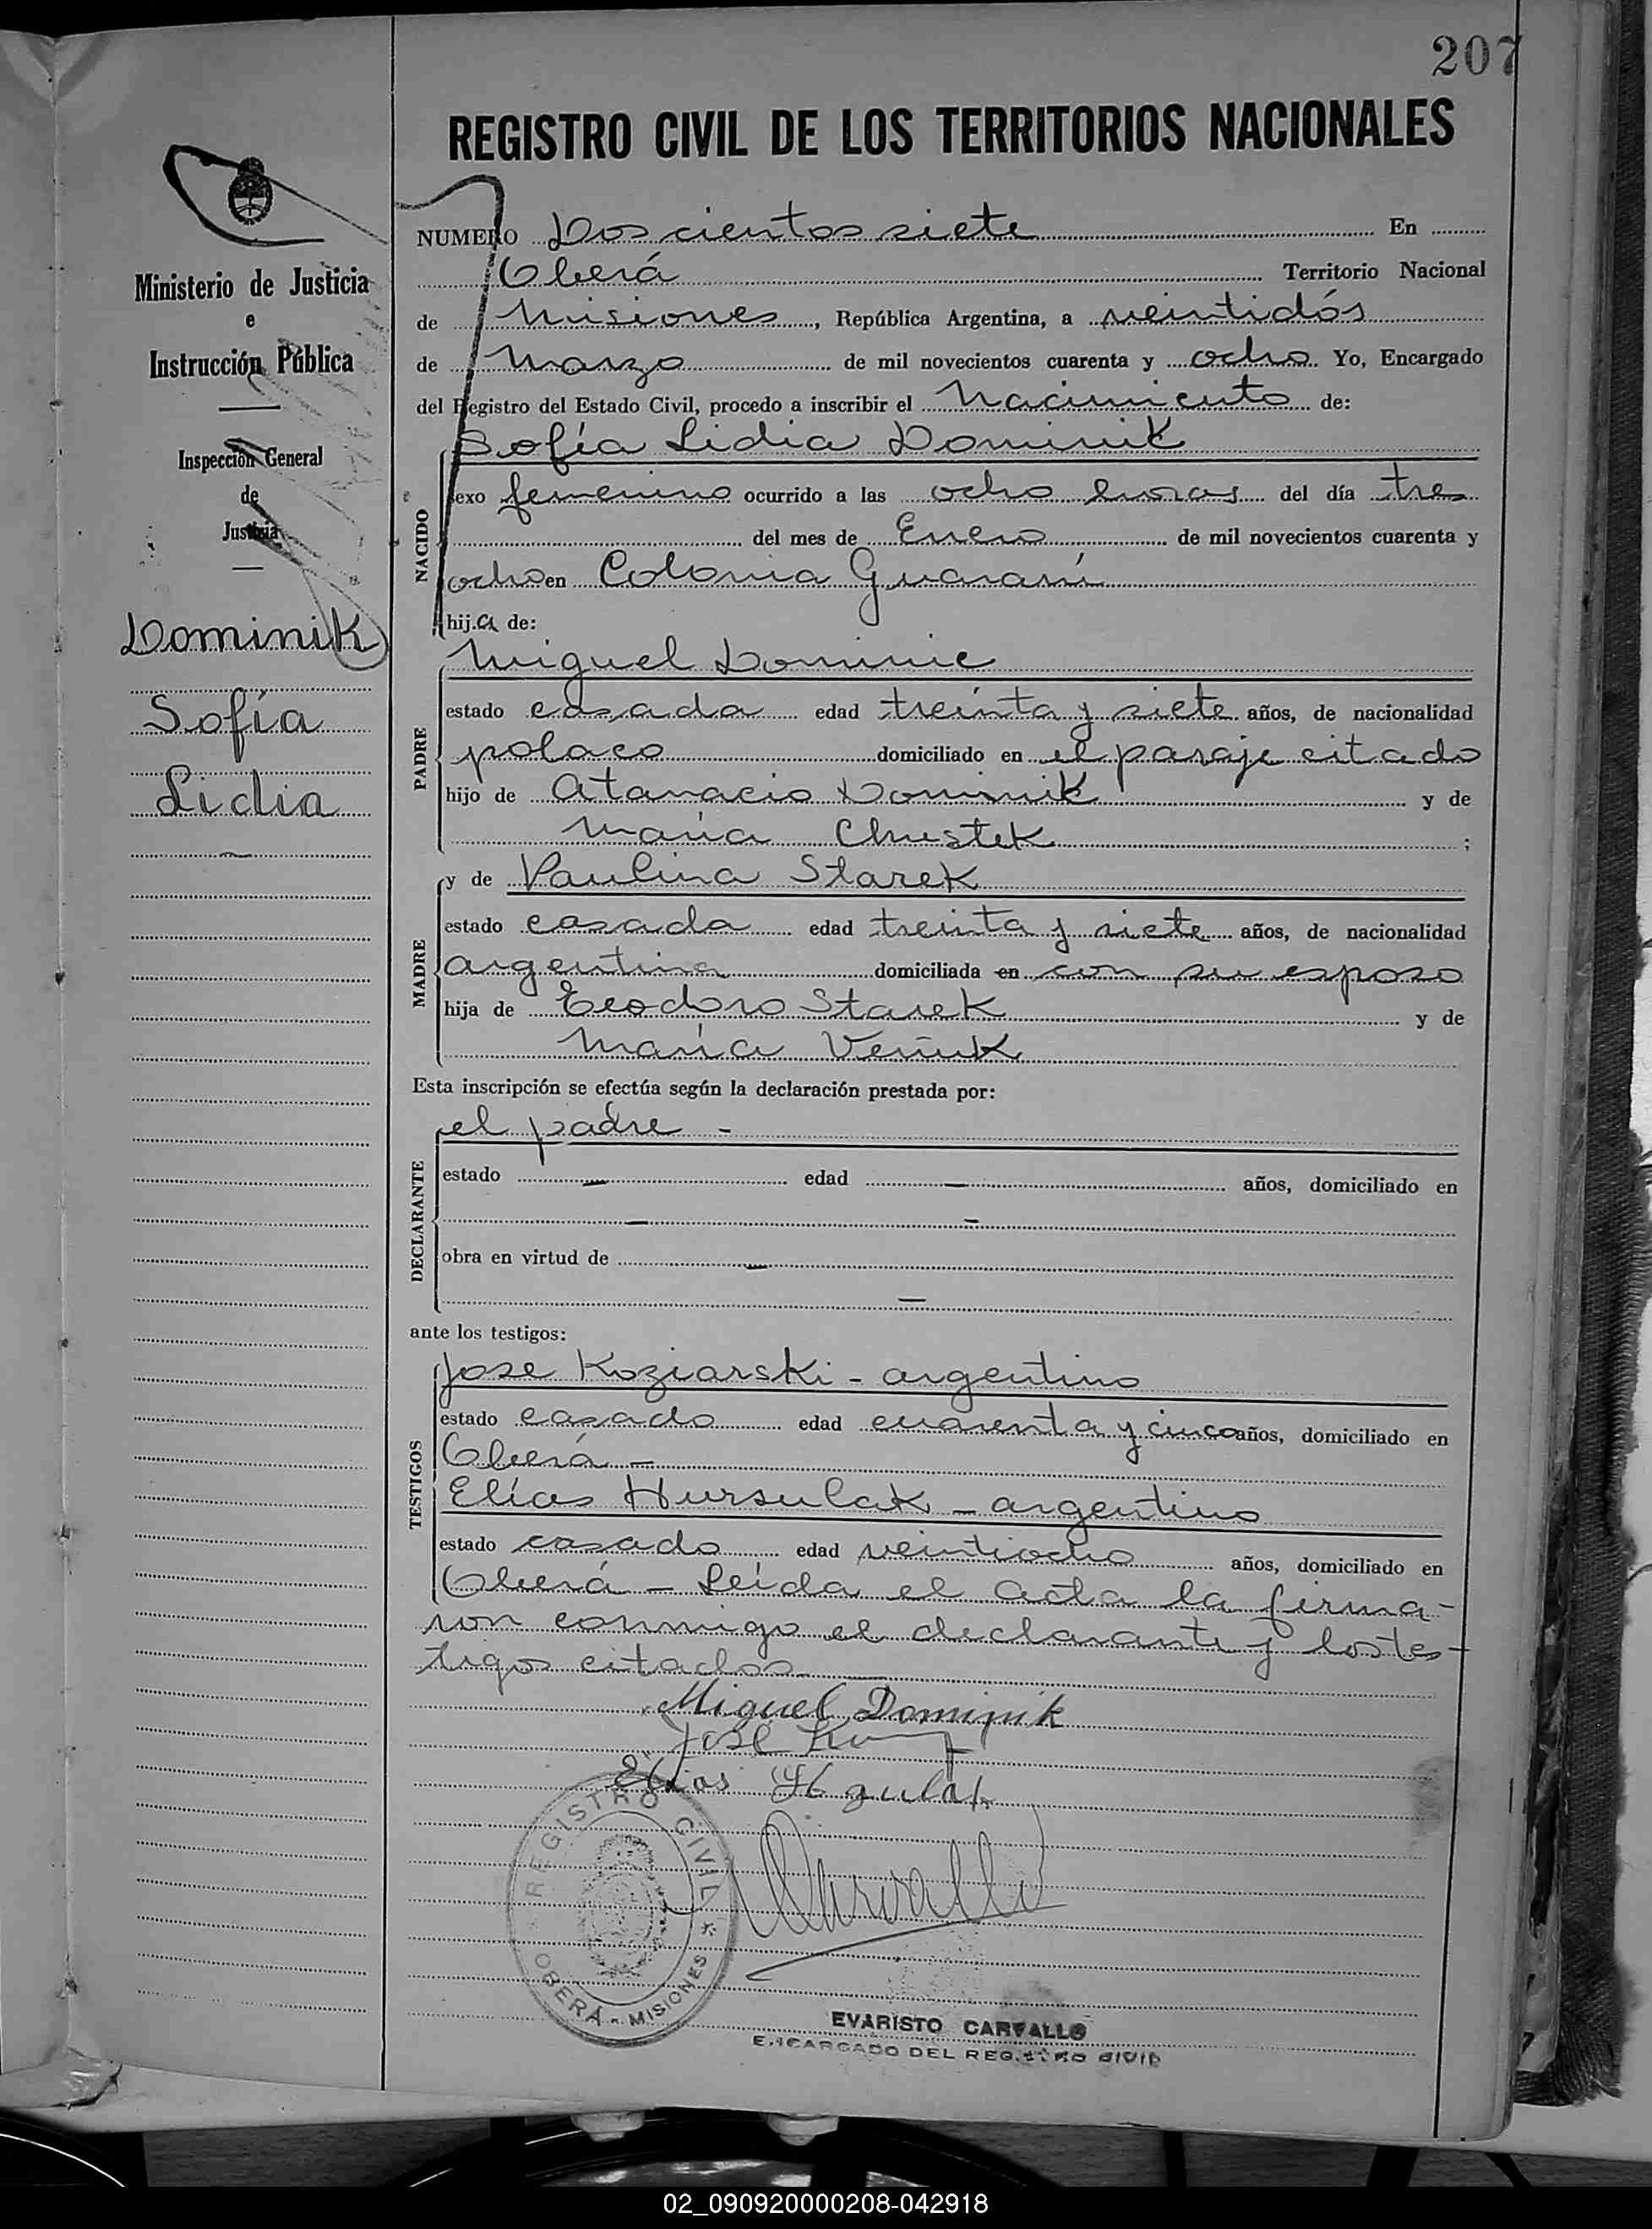 207
REGISTRO CIVIL DE LOS TERRITORIOS NACIONALES
Ministerio de Justicia
e
Instrucción Pública
Inspección General
de
Justicia
Dominik
Sofía
Lidia
NUMERO Doscientos siete En
Oberá Territorio Nacional
de Misiones, República Argentina, a veintidós
de Marzo de mil novecientos cuarenta y ocho Yo, Encargado
del Registro del Estado Civil, procedo a inscribir el Nacimiento de:
Sofía Lidia Dominik
NACIDO
sexo femenino ocurrido a las ocho horas del día tres
del mes de Enero de mil novecientos cuarenta y
ocho en Colonia Guaraní
hija de:
Miguel Dominic
PADRE
estado casada edad treinta y siete años, de nacionalidad
polaco domiciliado en el paraje citado
hijo de Atanacio Dominik y de
María Chustek ;
y de Paulina Starek
MADRE
estado casada edad treinta y siete años, de nacionalidad
argentina domiciliada en con su esposo
hija de Teodoro Starek y de
María
Esta inscripción se efectúa según la declaración prestada por:
el padre -
DECLARANTE
estado — edad — años, domiciliado en
— —
obra en virtud de —
—
ante los testigos:
TESTIGOS
Jose Koziarski - argentino
estado casado edad cuarenta y cinco años, domiciliado en
Oberá -
Elías Hursulak - argentino
estado casado edad veintiocho años, domiciliado en
Oberá - Leída el acta la firma-
ron conmigo el declarante y los tes-
tigos citados
Miguel Dominik
José
Elias
Carvallo
REGISTRO CIVIL * OBERÁ - MISIONES
EVARISTO CARVALLO
ENCARGADO DEL REGISTRO CIVIL
02_090920000208-042918